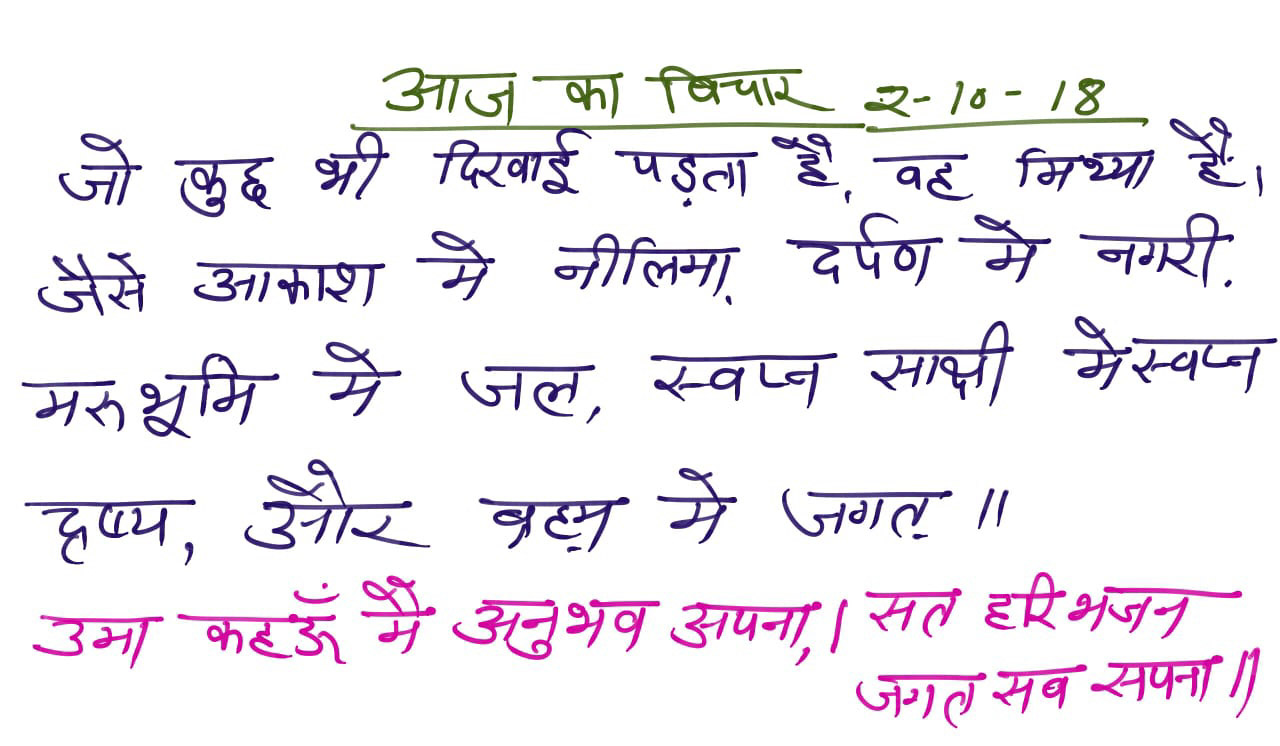 आज का बिचार २-10-18
जो कुछ भी दिखाई पड़ता है, वह मिथ्या है।
जैसे आकाश मे नीलिमा, दर्पण मे नगरी,
मरुभूमि मे जल, स्वप्न साक्षी मे स्वप्न
दृष्य, और ब्रह्म मे जगत् ॥
उमा कहऊँ मै अनुभव अपना,। सत हरि भजन
जगत सब सपना॥